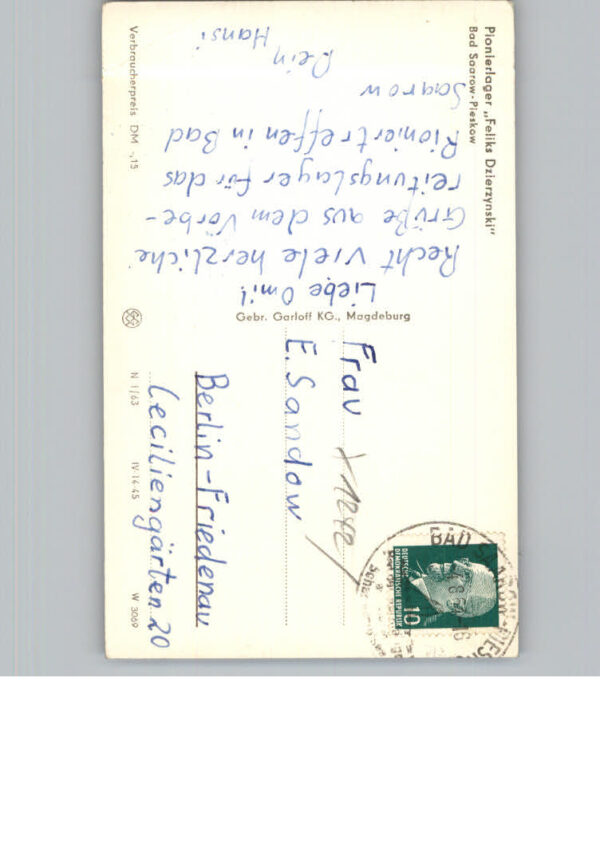 Pionierlager „Feliks Dzierzynski"
Bad Saarow-Pieskow
Liebe Omi!
Recht viele herzliche
Grüße aus dem Vorbe-
reitungslager für das
Pioniertreffen in Bad
Saarow
Dein
Hansi
Verbraucherpreis DM -,15
Gebr. Garloff KG., Magdeburg
Frau
E. Sandow
Berlin-Friedenau
Ceciliengärten 20
N 1/63
IV-14-45
W 3069
DEUTSCHE
DEMOKRATISCHE REPUBLIK
10
BAD SAAROW-PIESKOW